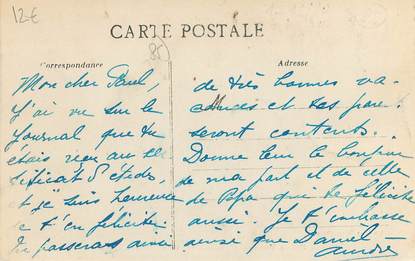 12€
CARTE POSTALE
85
Correspondance
Adresse
Mon cher Paul,
J'ai vu sur le
Journal que tu
étais reçu au cer
tificat d'études,
et je suis heureuse
de t'en féliciter
Tu passeras ainsi
de très bonnes va-
cances et tes parents
seront contents.
Donne leur le bonjour
de ma part et de celle
de Papa qui te félicite
aussi. Je t'embrasse
ainsi que Daniel